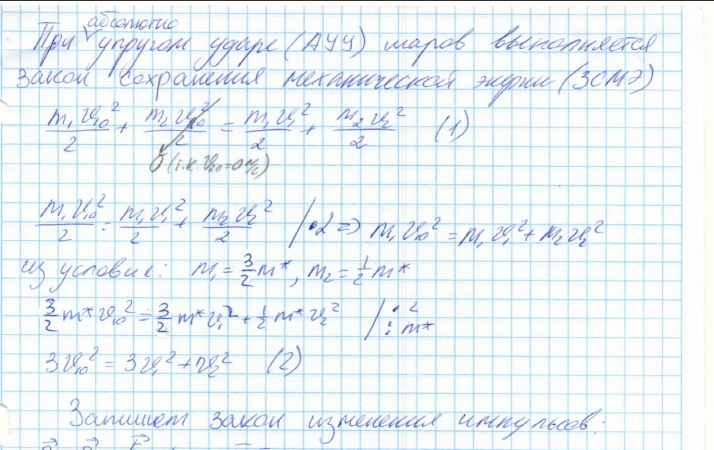 абсолютно
При упругом ударе (АУУ) шаров выполняется
закон сохранения механической энергии (ЗСМЭ)
m₁υ₁₀²/2 + m₂υ₂₀²/2 = m₁υ₁²/2 + m₂υ₂²/2 (1)
0 (т.к. υ₂₀=0 м/с)
m₁υ₁₀²/2 = m₁υ₁²/2 + m₂υ₂²/2 /·2 => m₁υ₁₀² = m₁υ₁² + m₂υ₂²
из условия: m₁ = 3/2 m*, m₂ = 1/2 m*
3/2 m* υ₁₀² = 3/2 m* υ₁² + 1/2 m* υ₂² / · 2 : m*
3υ₁₀² = 3υ₁² + υ₂² (2)
Запишем закон изменения импульсов: